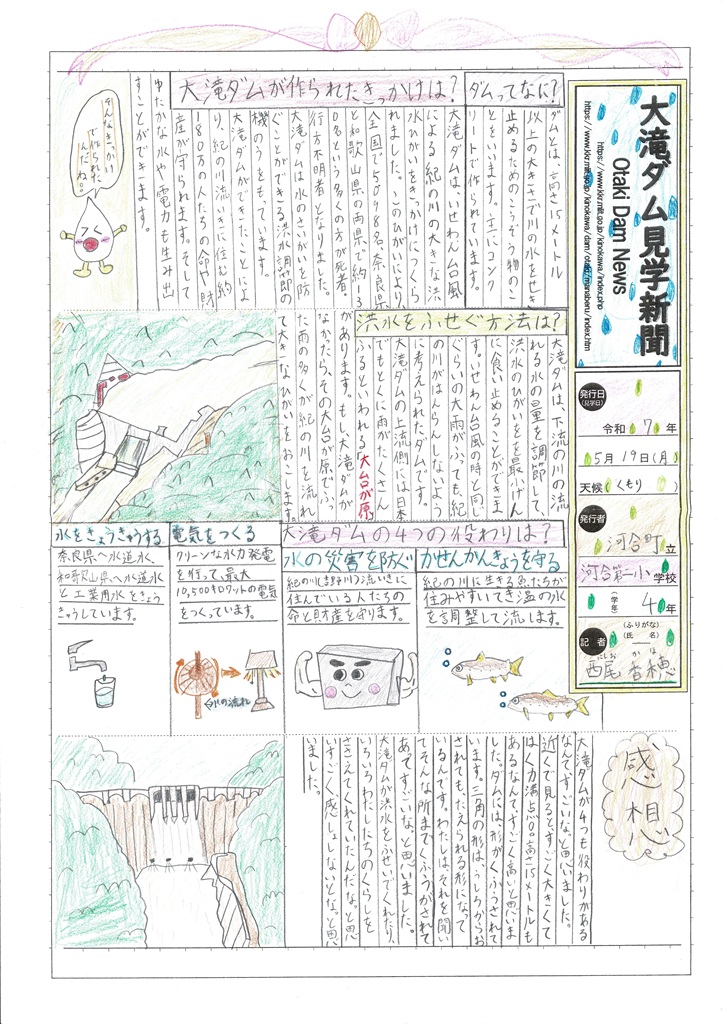 大滝ダム見学新聞
Otaki Dam News
https://www.kkr.mlit.go.jp/kinokawa/index.php
https://www.kkr.mlit.go.jp/kinokawa/dam/otaki/manaberu/index.htm
発行日
(見学日)
令和 7 年
5月 19日(月)
天候( くもり )
発行者
河合町 立
河合第一小 学校
(学年) 4 年
記者
(ふりがな)
(氏 名)
にしお かほ
西尾 香穂
ダムってなに?
ダムとは、高さ15メートル
以上の大きさで川の水をせき
止めるためのこうぞう物のこ
とをいいます。主にコンク
リートで作られています。
大滝ダムが作られたきっかけは?
大滝ダムは、いせわん台風
による紀の川の大きな洪
水ひがいをきっかけにつくら
れました。このひがいにより、
全国で5098名、奈良県
と和歌山県の両県で約130
0名という多くの方が死者・
行方不明者となりました。
大滝ダムは水のさいがいを防
ぐことができる洪水調節の
機のうをもってます。
大滝ダムができたことによ
り、紀の川流いきに住む約
180万の人たちの命や財
産が守られます。そして
ゆたかな水や、電力も生み出
すことができます。
そんなきっかけ
で作られた
んだね。
洪水をふせぐ方法は?
大滝ダムは、下流の川の流
れる水の量を調節して、
洪水のひがいをを最小げん
に食い止めることができま
す。いせわん台風の時と同じ
ぐらいの大雨がふっても、紀
の川がはんらんしないよう
に考えられたダムです。
大滝ダムの上流側には日本
でもとくに雨がたくさん
ふるといわれる大台が原
があります。もし、大滝ダムが
なかったら、その大台が原でふっ
た雨の多くが紀の川を流れ
て大きなひがいをおこします。
大滝ダムの4つの役わりは?
かせんかんきょうを守る
紀の川に生きる魚たちが
住みやすいてき温の水
を調整して流します。
水の災害を防ぐ
紀の川(吉野川)流いきに
住んでいる人たちの
命と財産を守ります。
電気をつくる
クリーンな水力発電
を行って、最大
10,500キロワットの電気
をつくっています。
水の流れ
水をきょうきゅうする
奈良県へ水道水、
和歌山県へ水道水
と工業用水をきょう
きゅうしています。
感想
大滝ダムが4つも役わりがある
なんてすごいな。と思いました。
近くで見ると、すごく大きくて
はく力満点。高さ15メートルも
あるなんて、すごく高いと思いま
した。ダムには形がくふうされて
います。三角の形は、うしろからお
されても、たえられる形になって
いるんです。わたしはそれを聞い
てそんな所までくふうがされて
あってすごいな。と思いました。
大滝ダムが洪水をふせいでくれたり、
いろいろわたしたちのくらしを
ささえてくれていたんだな。と思
いすごく感しゃしないとな。と思
いました。